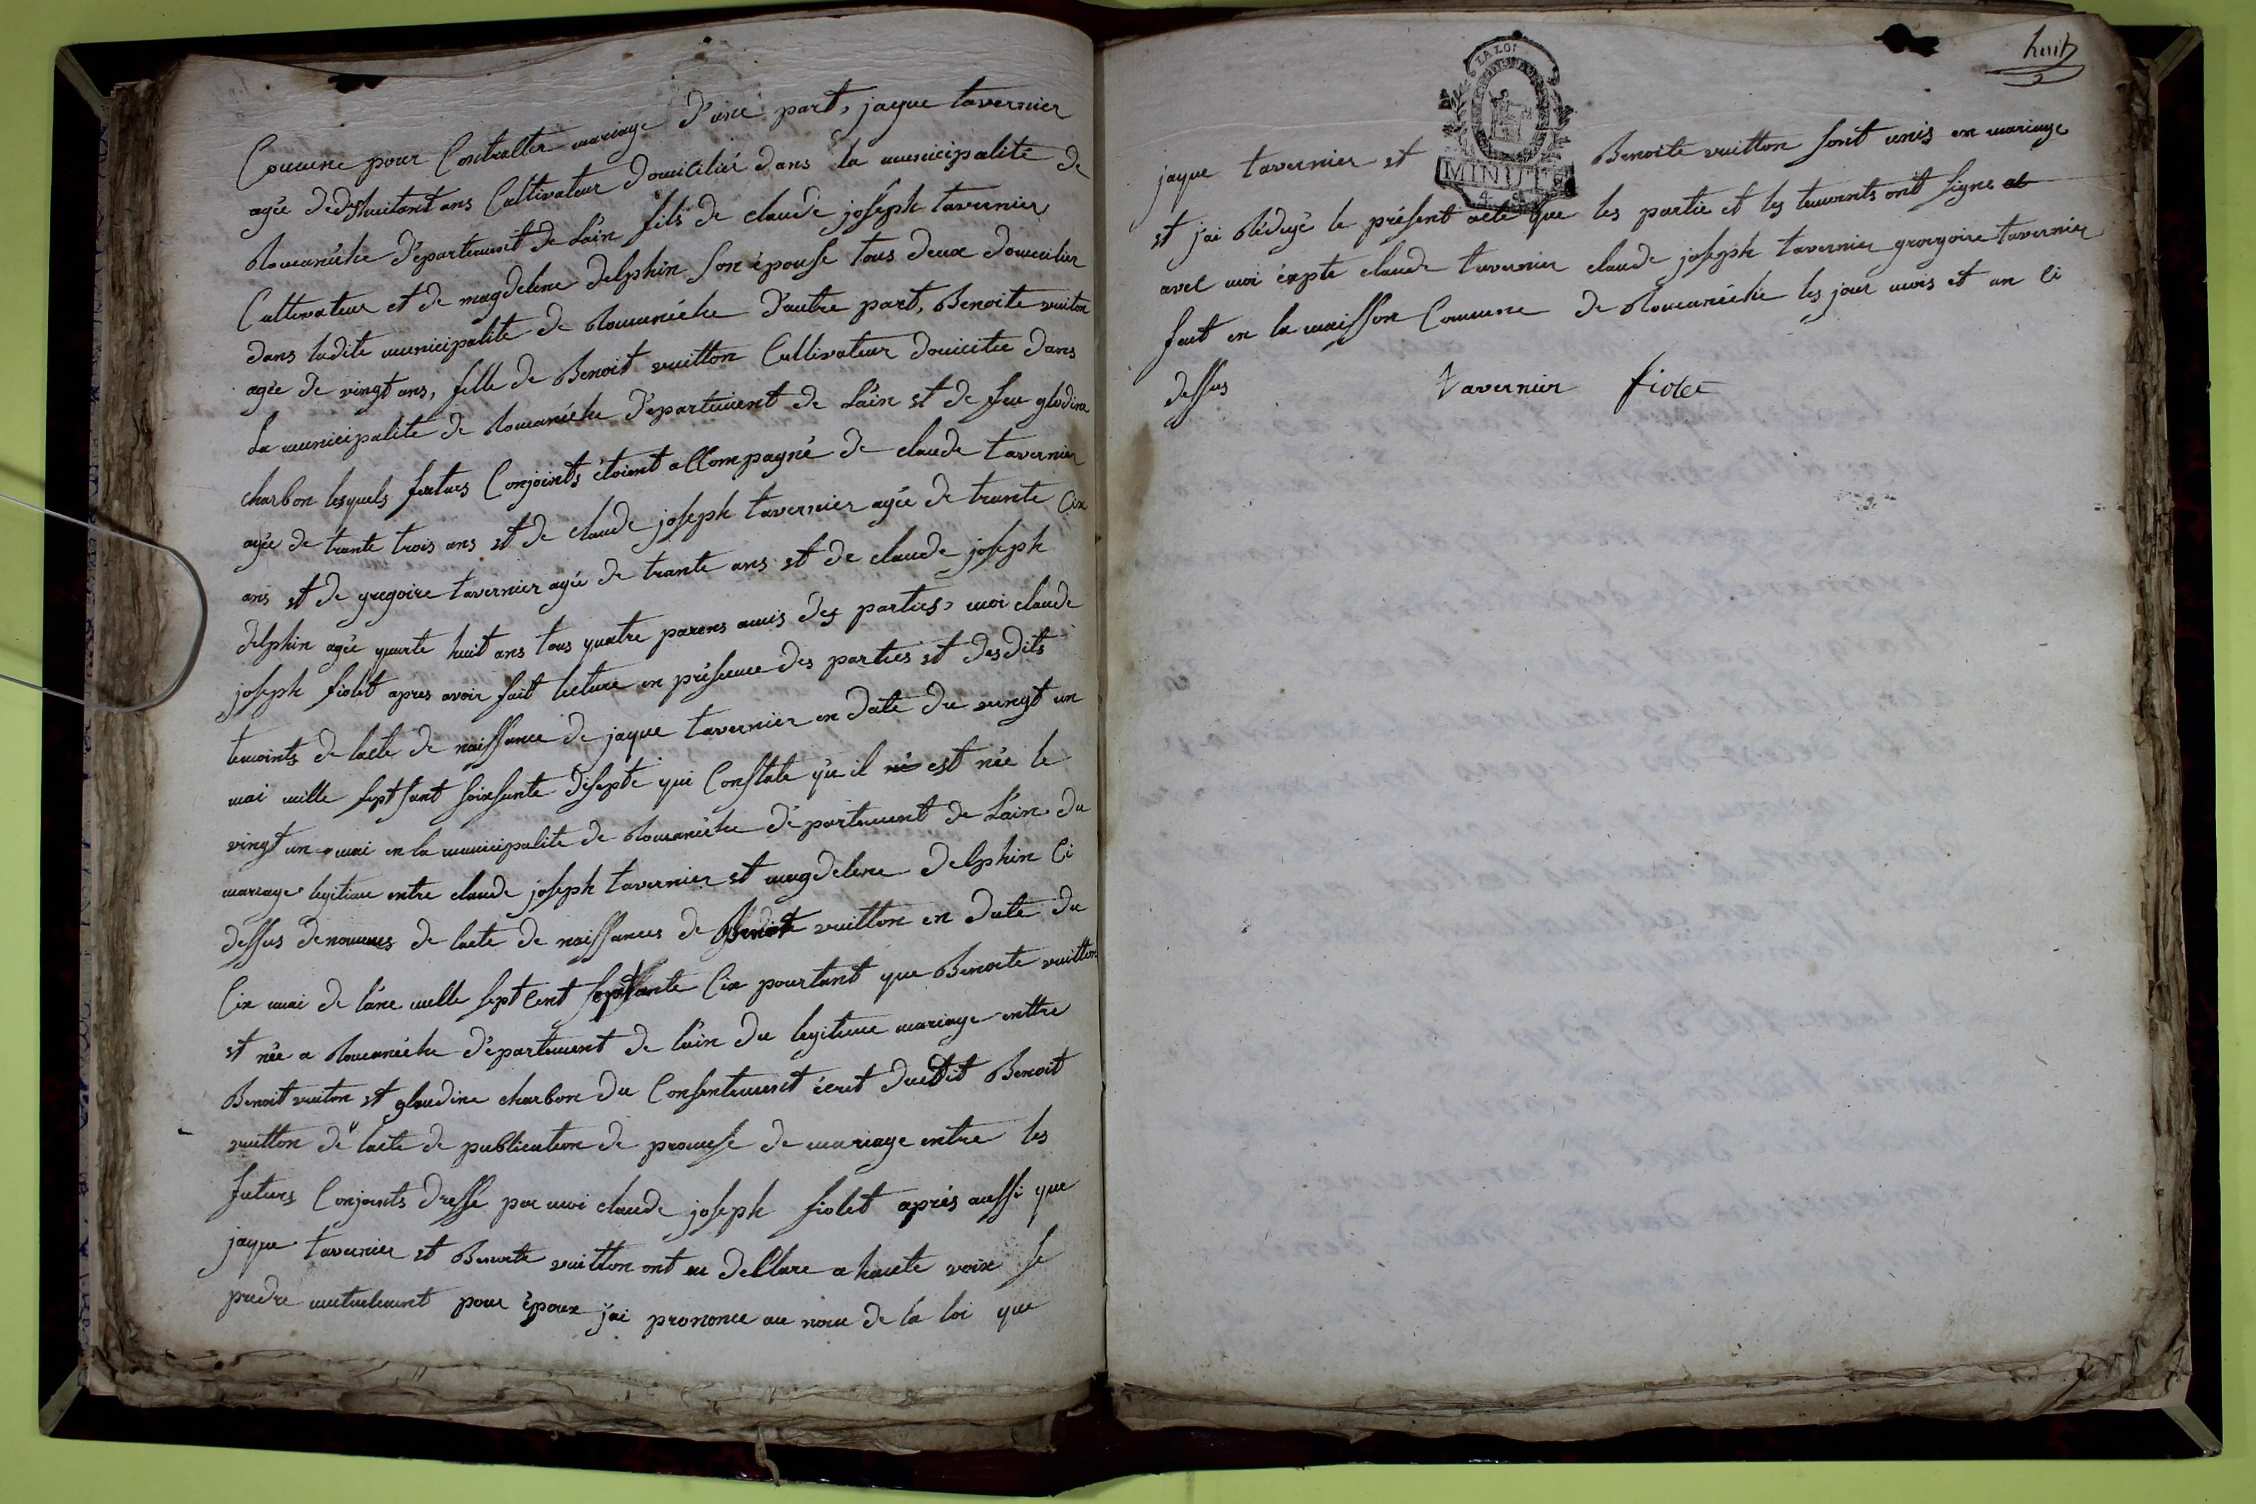 Comune pour Contralter mariage d'une part, jaque tavernier
agée dedishuitant ans Cultivateur domicilié dans la municipalité de
Romanéche département de Lain fils de claude joseph tavernier
Cultivateur et de magdelene delphin son épouse tous deux domicilier
dans ladite municipalité de Romanéche d'autre part, Benoite vuiton
agée de vingt ans, fille de Benoit vuitton Cultivateur domicilie dans
La municipalite de Romanéche département de Lain et de feu glodine
charbon lesquels futurs Conjoints étoient accompagné de claude tavernier
agée de trante trois ans et de claude joseph tavernier agée de trante Cix
ans et de gregoire tavernier agée de trante ans et de claude joseph
delphin agée quarte huit ans tous quatre parens amis des parties, moi claude
joseph fiolet apres avoir fait lecture en présence des parties et desdits
temoints de lacte de naissance de jaque tavernier en date du vingt un
mai mille sept sant soixsante disepte qui Constate qu'il est née le
vingt un mai en la municipalite de Romanéche département de Lain du
mariage legitime entre claude joseph tavernier et magdelene delphin Ci
dessus denommes de lacte de naissances de Benoite vuitton en date du
Cix mai de lane mille sept Cent Cix pourtant que Benoite vuitton
et née a Romanéche département de lain du legitime mariage enttre
Benoit vuiton et gloudine charbon du Consentement écrit dudit Benoit
vuitton de lacte de publication de promesse de mariage entre les
futurs Conjoints dressé par moi claude joseph fiolet aprés aussi que
jaque tavernier et Benoite vuitton ont eu declare a haute voix se
predre mutuelement pour époux j'ai prononce au nom de la loi que
huit
LA LOI
MINUTE
jaque tavernier et Benoite vuitton sont unis en mariage
et j'ai Rédigé le présent acte que les partie et les temoints ont signe
avec moi expte claude tavernier claude joseph tavernier groigoire tavernier
fait en la maisson Comune de Romanéche les jour mois et an Ci
dessus tavernier fiolet